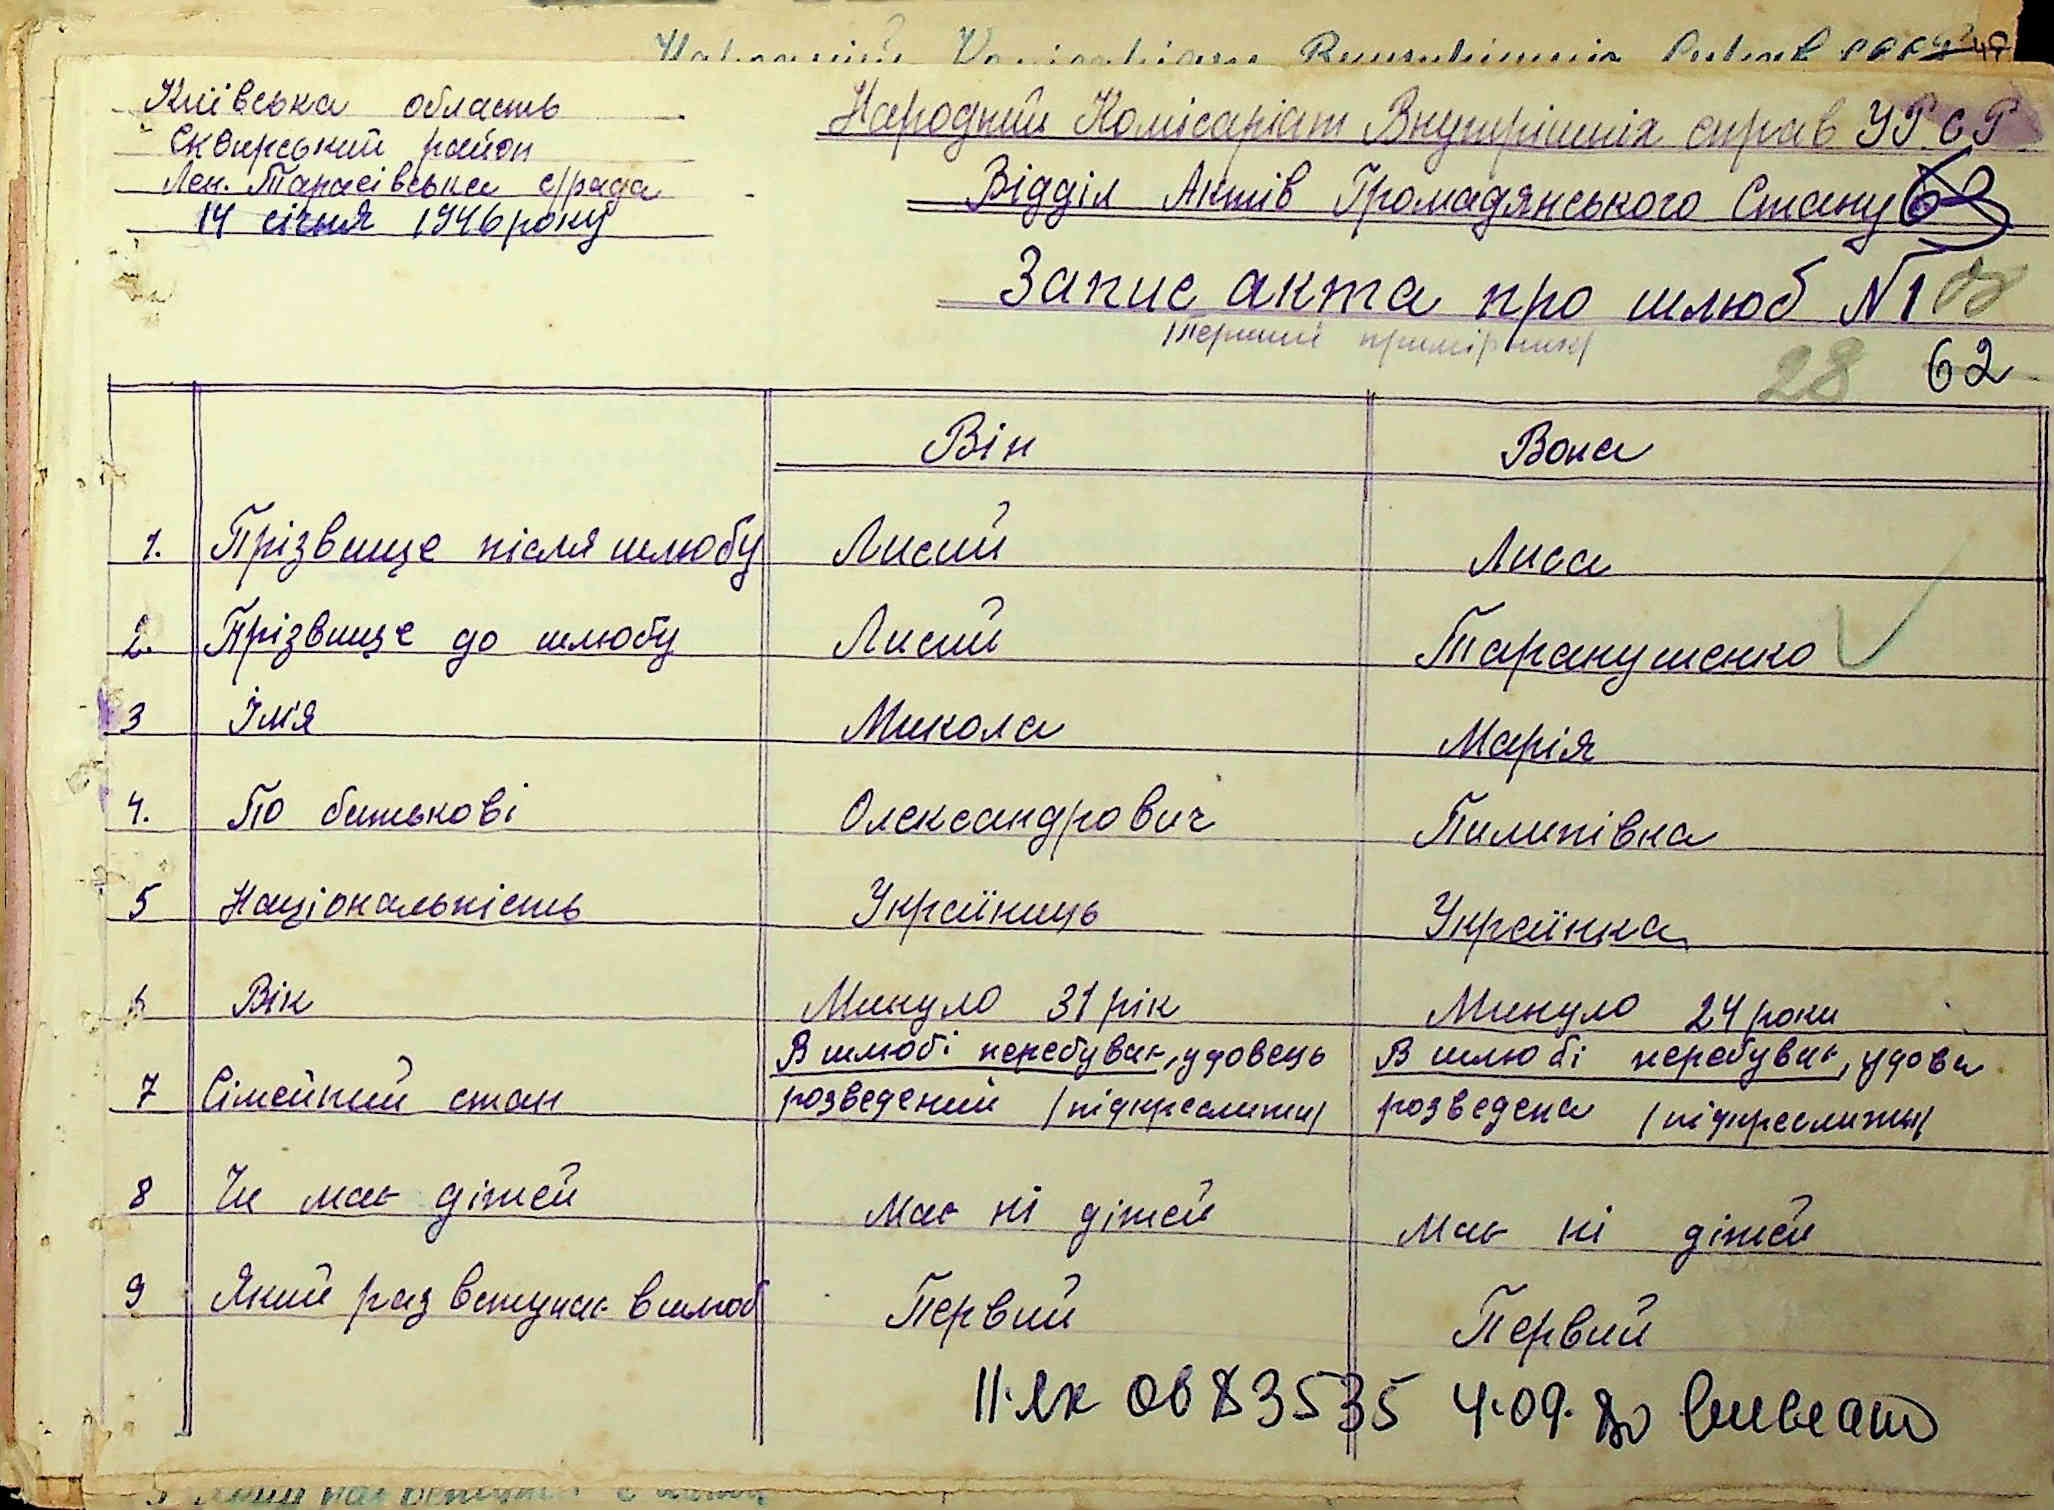 Київська область
Сквирський район
Лен. Тарасівська с/рада
14 січня 1946 року
Народний Комісаріат Внутрішніх справ УРСР
Відділ Актів Громадянського Стану 63
Запис акта про шлюб №1
/Перший примірник/
28 62
Він Вона
1. Прізвище після шлюбу Лисий Лиса
2. Прізвище до шлюбу Лисий Таранушенко
3 Ім'я Микола Марія
4. По батькові Олександрович Пилипівна
5 Національність Українець Українка
6 Вік Минуло 31 рік Минуло 24 роки
7 Сімейний стан В шлюбі перебував, удовець розведений /підкреслити/ В шлюбі перебував, удова розведена /підкреслити/
8 Чи має дітей Має ні дітей Має ні дітей
9 Який раз вступає в шлюб Первий Первий
II-ЯК 083535 4.09.80